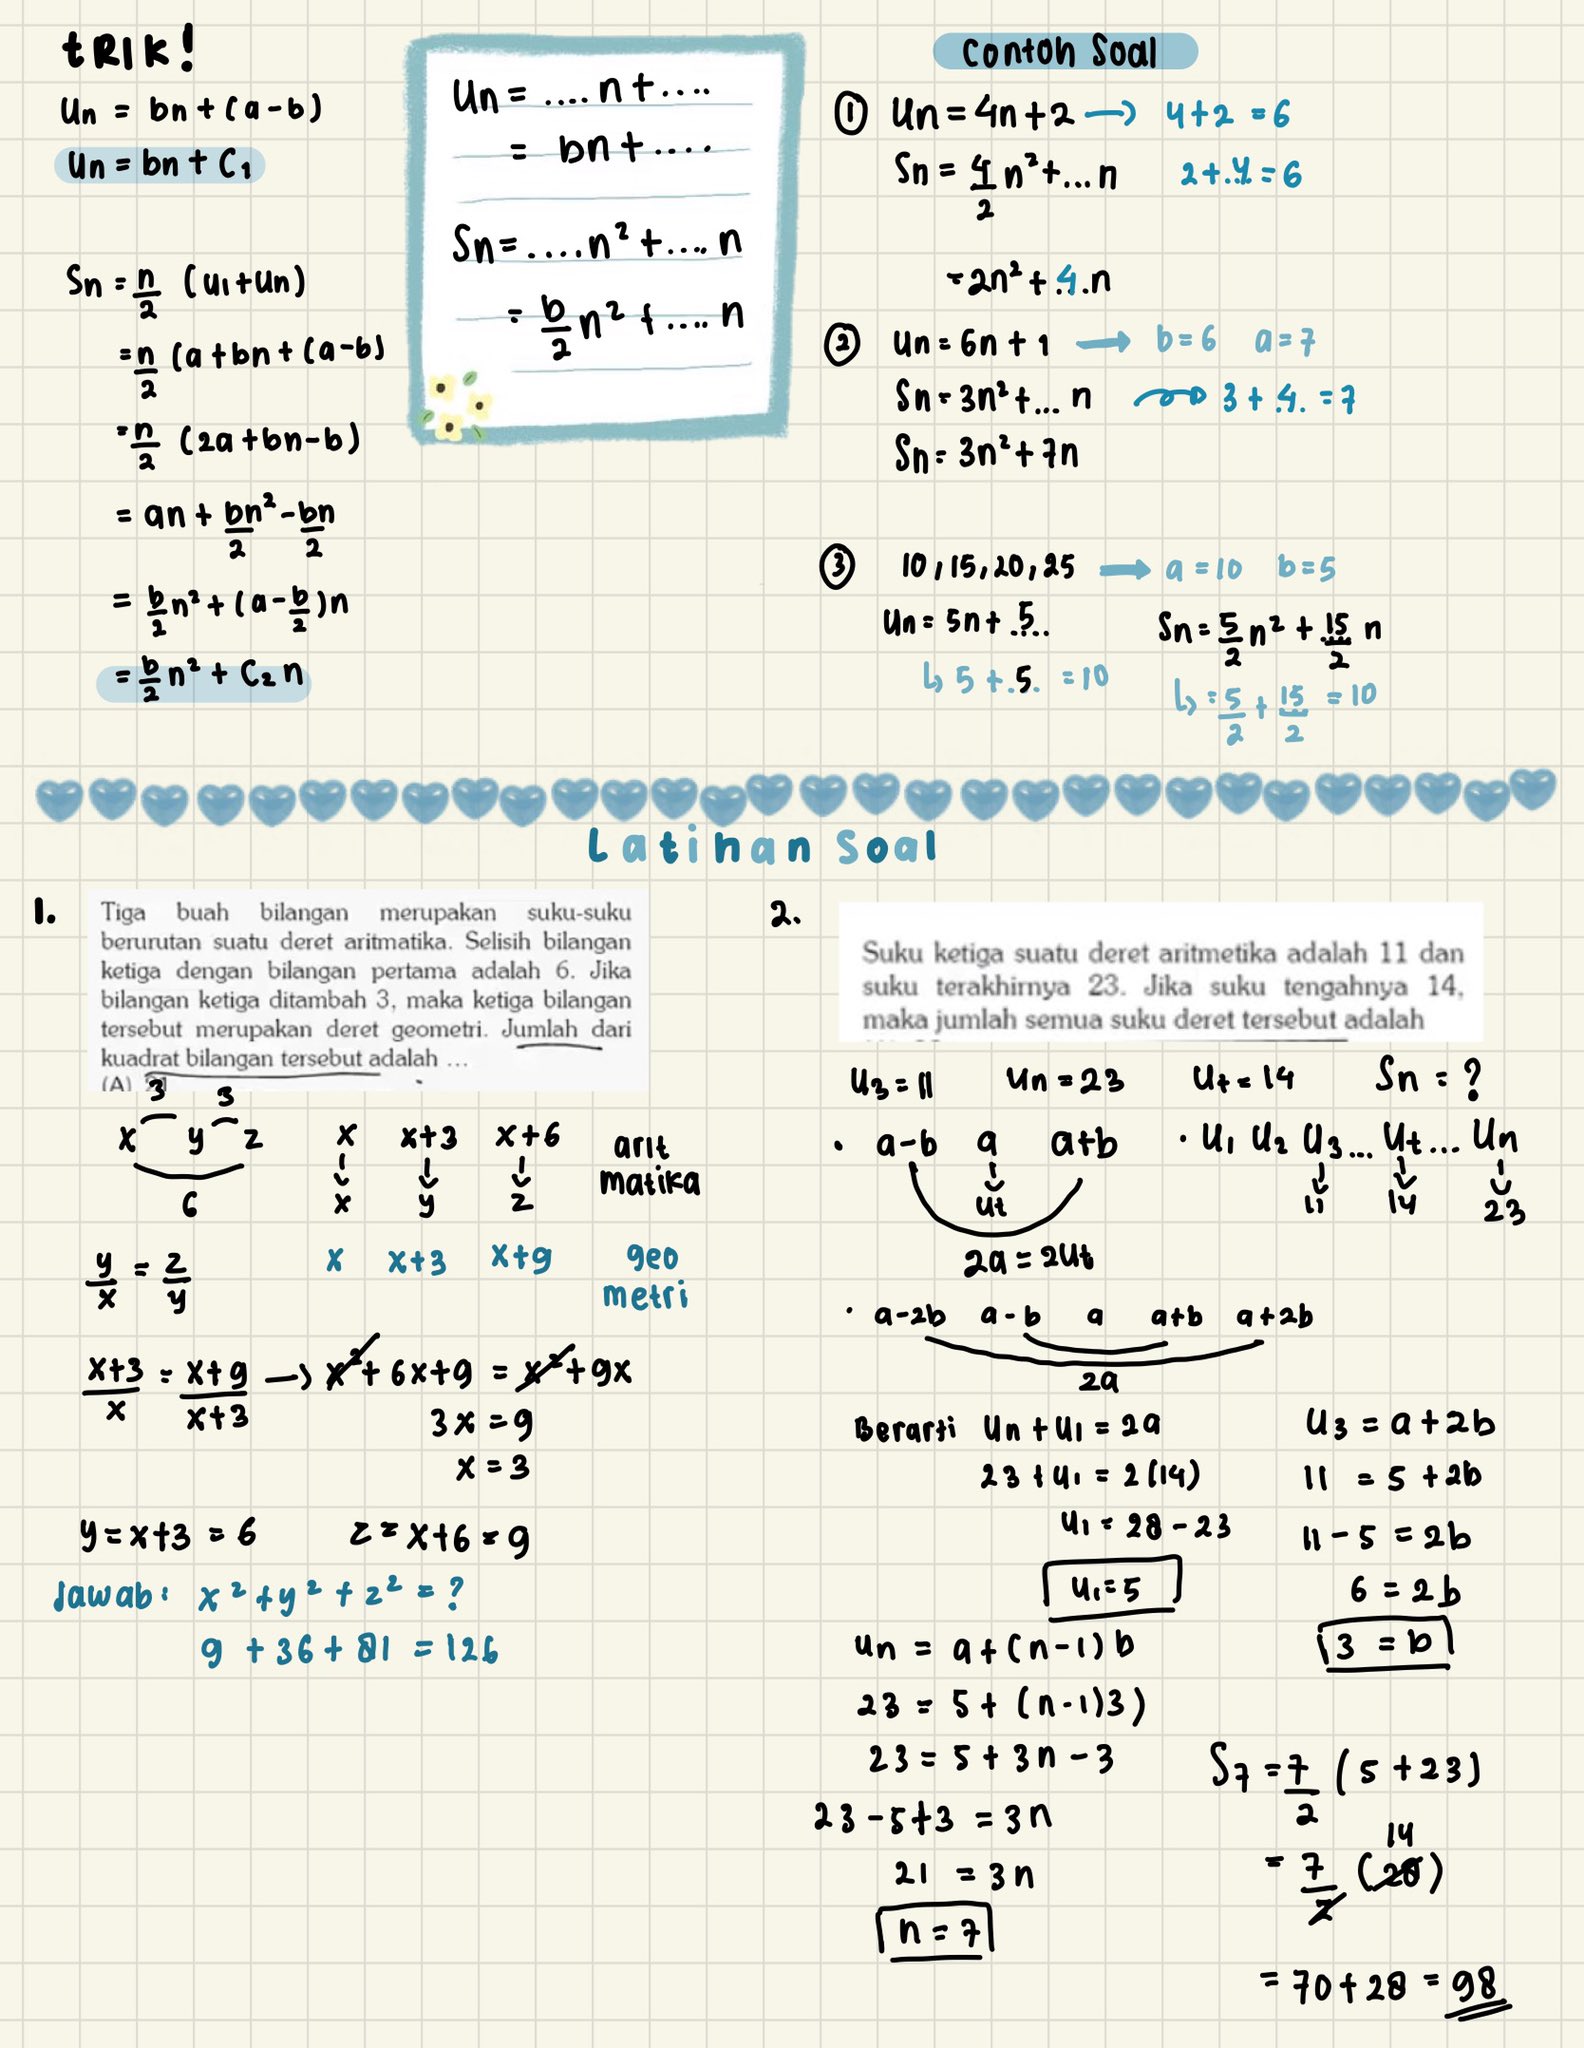 tRIK!
Un = bn + (a-b)
Un = bn + C₁
Sn = n/2 (U₁+Un)
= n/2 (a+bn+(a-b)
= n/2 (2a+bn-b)
= an + bn²/2 - bn/2
= b/2 n² + (a - b/2)n
= b/2 n² + C₂ n
Un = .... n + ....
= bn + ....
Sn = .... n² + .... n
= b/2 n² + .... n
Contoh Soal
① Un = 4n+2 → 4+2 = 6
Sn = 4/2 n² + ... n 2 + .4. = 6
= 2n² + .4. n
② Un = 6n + 1 → b=6 a=7
Sn = 3n² + ... n → 3 + .4. = 7
Sn = 3n² + 7n
③ 10, 15, 20, 25 → a=10 b=5
Un = 5n + .5.. Sn = 5/2 n² + 15/2 n
↳ 5 + .5. = 10 ↳ = 5/2 + 15/2 = 10
Latihan Soal
1.
Tiga buah bilangan merupakan suku-suku
berurutan suatu deret aritmatika. Selisih bilangan
ketiga dengan bilangan pertama adalah 6. Jika
bilangan ketiga ditambah 3, maka ketiga bilangan
tersebut merupakan deret geometri. Jumlah dari
kuadrat bilangan tersebut adalah ...
(A)
3 3
x y z
6
x x+3 x+6 arit
↓ ↓ ↓ matika
x y z
y/x = z/y
x x+3 x+9 geo
metri
x+3/x = x+9/x+3 → x² + 6x+9 = x² + 9x
3x = 9
x = 3
y = x+3 = 6 z = x+6 = 9
Jawab: x² + y² + z² = ?
9 + 36 + 81 = 126
2.
Suku ketiga suatu deret aritmetika adalah 11 dan
suku terakhirnya 23. Jika suku tengahnya 14,
maka jumlah semua suku deret tersebut adalah
U₃ = 11 Un = 23 Ut = 14 Sn = ?
• a-b a a+b
↓
Ut
2a = 2Ut
• U₁ U₂ U₃ ... Ut ... Un
↓ ↓ ↓
11 14 23
• a-2b a-b a a+b a+2b
2a
Berarti Un + U₁ = 2a
23 + U₁ = 2(14)
U₁ = 28 - 23
U₁ = 5
U₃ = a + 2b
11 = 5 + 2b
11 - 5 = 2b
6 = 2b
3 = b
Un = a + (n-1) b
23 = 5 + (n-1)3)
23 = 5 + 3n - 3
23 - 5 + 3 = 3n
21 = 3n
n = 7
S₇ = 7/2 (5 + 23)
14
= 7/2 (28)
= 70 + 28 = 98